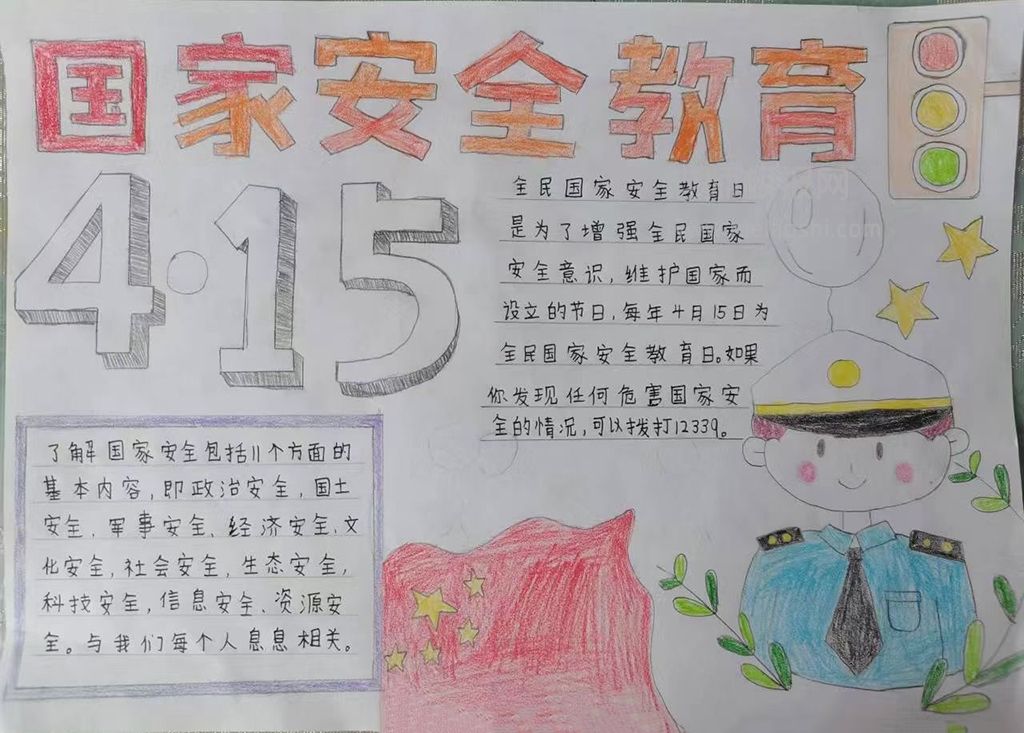 国家安全教育
4·15
全民国家安全教育日
是为了增强全民国家
安全意识,维护国家而
设立的节日,每年4月15日为
全民国家安全教育日。如果
你发现任何危害国家安
全的情况,可以拨打12339。
了解国家安全包括11个方面的
基本内容,即政治安全,国土
安全、军事安全、经济安全、文
化安全,社会安全,生态安全,
科技安全,信息安全、资源安
全。与我们每个人息息相关。